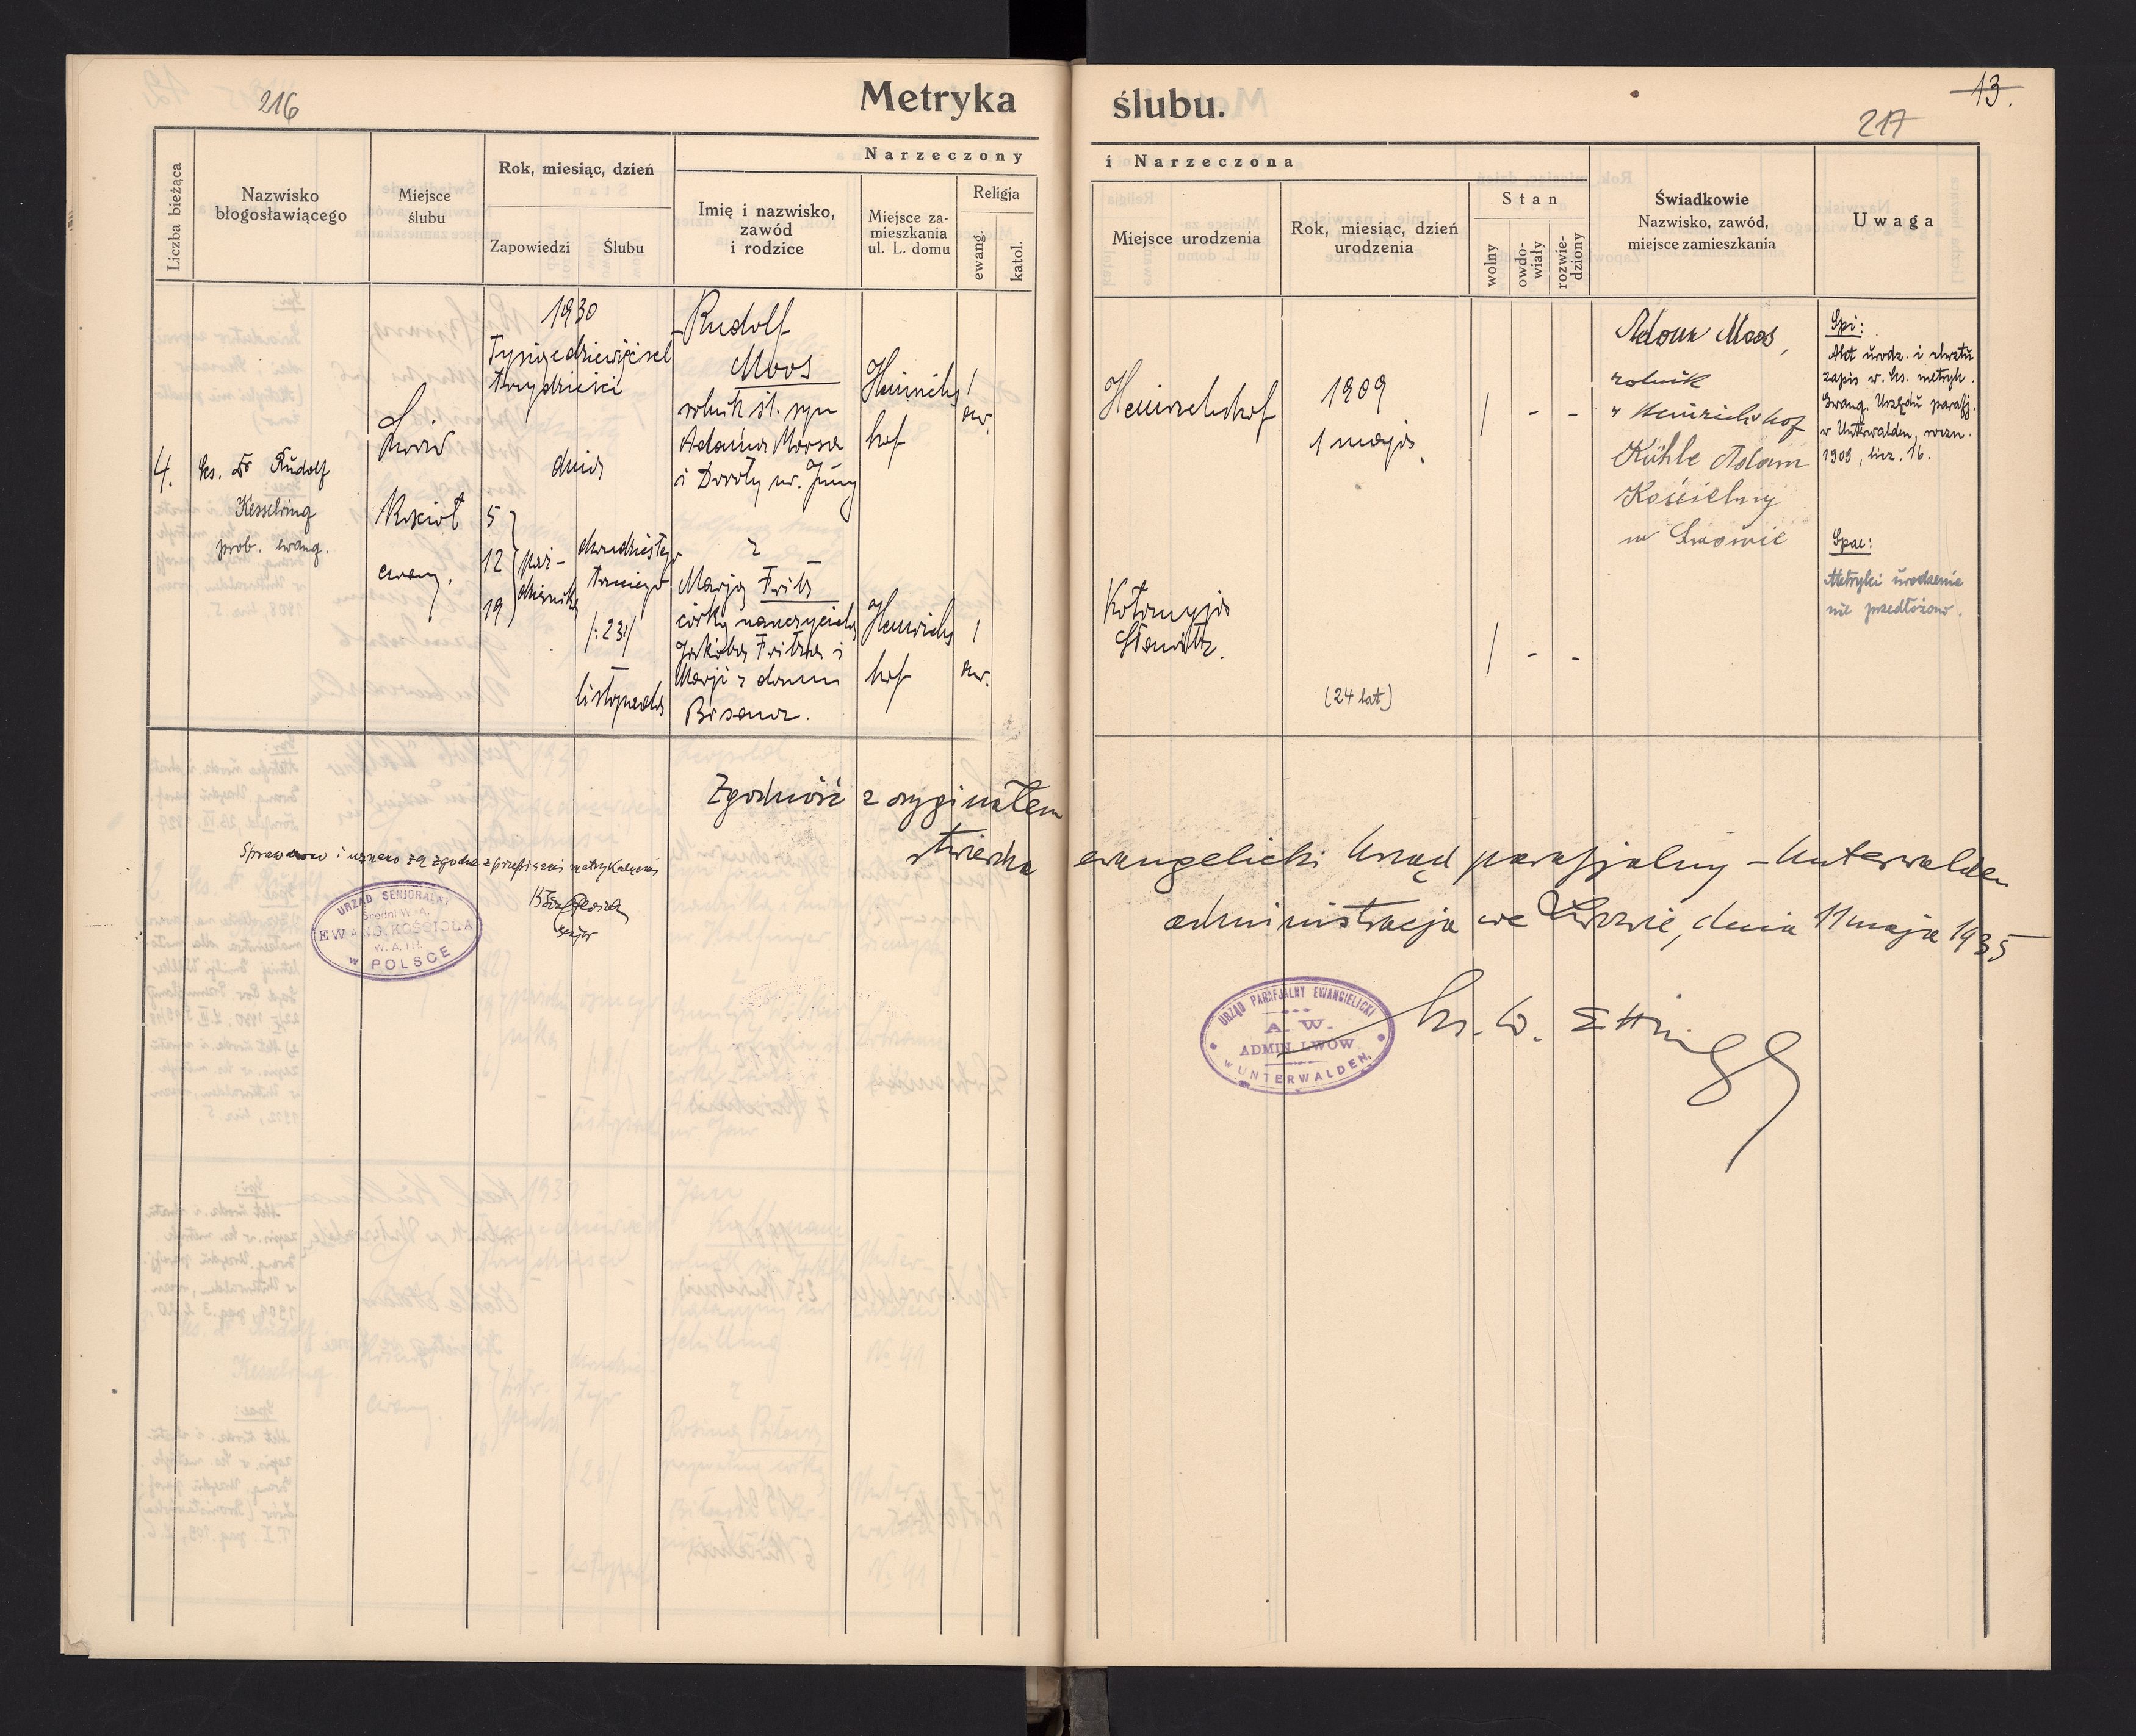 216
Metryka ślubu.
13.
217
Liczba bieżąca
Nazwisko
błogosławiącego
Miejsce
ślubu
Rok, miesiąc, dzień
Zapowiedzi
Ślubu
Narzeczony
Imię i nazwisko,
zawód
i rodzice
Miejsce za-
mieszkania
ul. L. domu
Religja
ewang.
katol.
i Narzeczona
Miejsce urodzenia
Rok, miesiąc, dzień
urodzenia
Stan
wolny
owdo-
wiały
rozwie-
dziony
Świadkowie
Nazwisko, zawód,
miejsce zamieszkania
Uwaga
4.
ks. Dr Rudolf
Kesselring
prob. ewang.
Lwów
Kościół
ewang.
1930
Tysiąc dziewięćset
trzydzieści
dnia
5
12
19
paź-
dziernika
dwudziestego
trzeciego
/:23:/
listopada
Rudolf
Moos
rolnik śl. syn
Adama Moosa
i Doroty ur. Jung
z
Marją Fritz
córką nauczyciela
Jakóba Fritza i
Marji z domu
Bisanz.
Heinrichs
hof
1
ew.
Heinrichs
hof
1
ew.
Heinrichshof
1909
1 maja
/ - -
Kołomyja
(24 lat)
/ - -
Adam Moos,
rolnik
w Heinrichshof
Kühle Adam
Kościelny
we Lwowie
Spi:
Akt urodz. i chrztu
zapis w. ks. metryk.
Ewang. Urzędu parafj.
w Unterwalden, roczn.
1909, licz. 16.
Spae:
Metryki urodzenia
nie przedłożono.
Zgodność z oryginałem
stwierdza ewangelicki Urząd parafjalny - Unterwalden
administracja we Lwowie, dnia 11 maja 1935
Sprawdzono i uznano za zgodne z przepisami metrykalnemi
senjor
URZĄD SENJORALNY
Średni W. A.
EWANG. KOŚCIOŁA
W. A. I H.
w POLSCE
URZĄD PARAFJALNY EWANGIELICKI
A. W.
ADMIN. LWÓW
w UNTERWALDEN.
ks. W. Ettinger